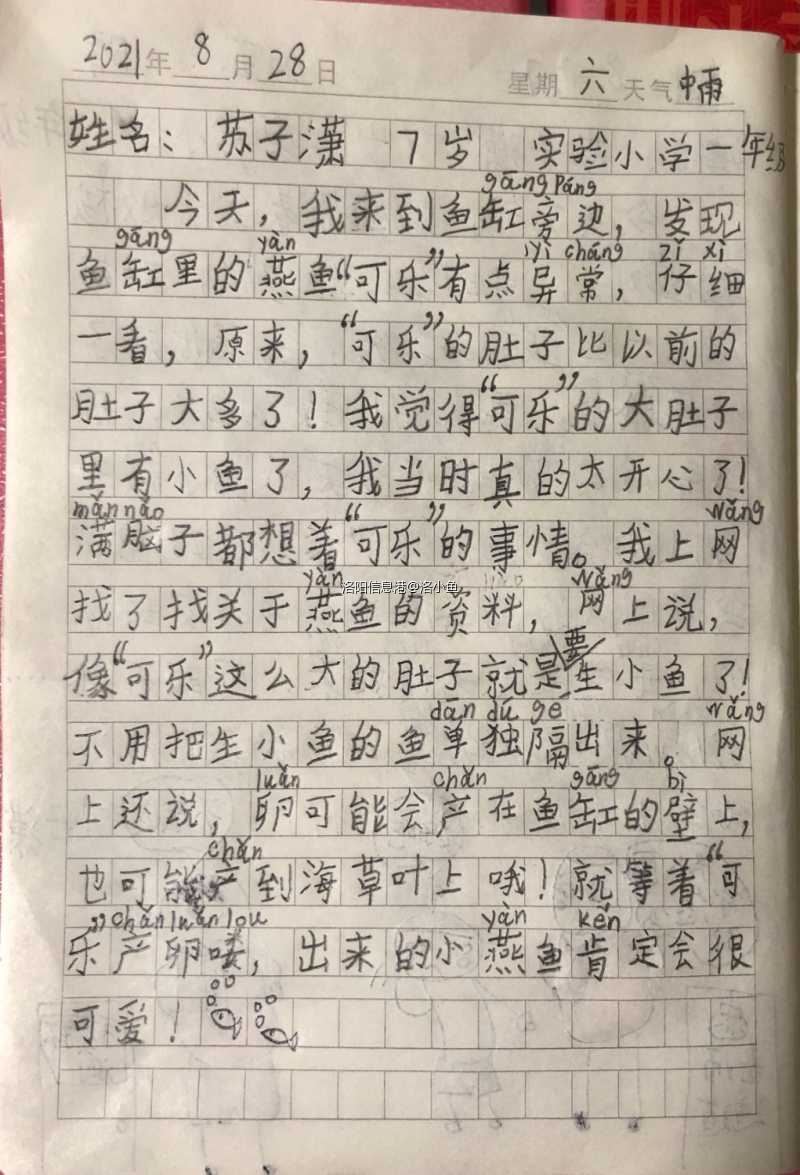 2021年 8月 28日 星期 六 天气 中雨
姓名：苏子潇 7岁 实验小学一年级
gāng Páng
今天，我来到鱼缸旁边，发现
gāng yàn yì cháng zǐ xì
鱼缸里的燕鱼“可乐”有点异常，仔细
一看，原来，“可乐”的肚子比以前的
肚子大多了！我觉得“可乐”的大肚子
里有小鱼了，我当时真的太开心了！
mǎn nǎo wǎng
满脑子都想着“可乐”的事情。我上网
yàn wǎng
找了找关于燕鱼的资料，网上说，
洛阳信息港@洛小鱼
像“可乐”这么大的肚子就是要生小鱼了！
dān dú gé wǎng
不用把生小鱼的鱼单独隔出来。网
luǎn chǎn gāng bì
上还说，卵可能会产在鱼缸的壁上，
chǎn
也可能产到海草叶上哦！就等着“可
chǎn luǎn lou yàn kěn
乐”产卵喽，出来的小燕鱼肯定会很
可爱！